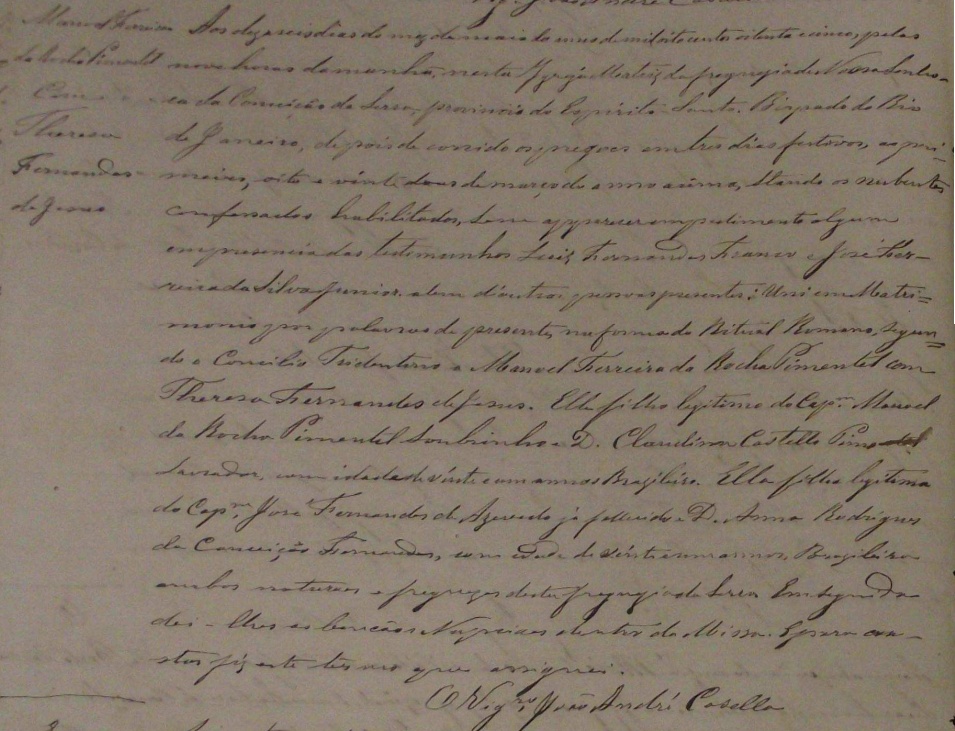 Manoel Ferreira
da Rocha Pimentel
Com
Theresa
Fernandes
de Jesus
Aos dezaseis dias do mez de maio do anno de mil oito centos oitenta e cinco, pelas
nove horas da manhã, nesta Igreja Matriz da freguezia de Nossa Senho-
ra da Conceição da Serra, provincia do Espirito-Santo. Bispado do Rio
de Janeiro, depois de corrido os pregoes em tres dias festivos, ao pri-
meiro, oito e vinte dous de março do anno acima, stando os nubentes
confessados habilitados, sem apparecer empedimento algum
em presencia das testimunhas Luiz Fernandes Franco e José Fer-
reira da Silva Junior. alem d'outras pessoas presentes; Uni em Matri=
monio por palavras de presente, na forma do Ritual Romano, segun=
do o Concilio Tridentino a Manoel Ferreira da Rocha Pimentel com
Theresa Fernandes de Jesus. Elle filho legitimo do Capm. Manoel
da Rocha Pimentel Soubrinho e D. Claudina Castello Pimentel
Lavrador, com idade de vinte e um annos Brazileiro. Ella filha legitima
do Capm. José Fernandes de Azevedo ja fallecido e D. Anna Rodrigues
da Conceição Fernandes, com idade de vinte e um annos, Brazileira
ambos naturaes e freguezes desta freguezia da Serra Em seguida
dei-lhes as bencãos Nupciaes dentro da Missa. E para con-
star fiz este termo que assignei.
O Vigro. João André Casella